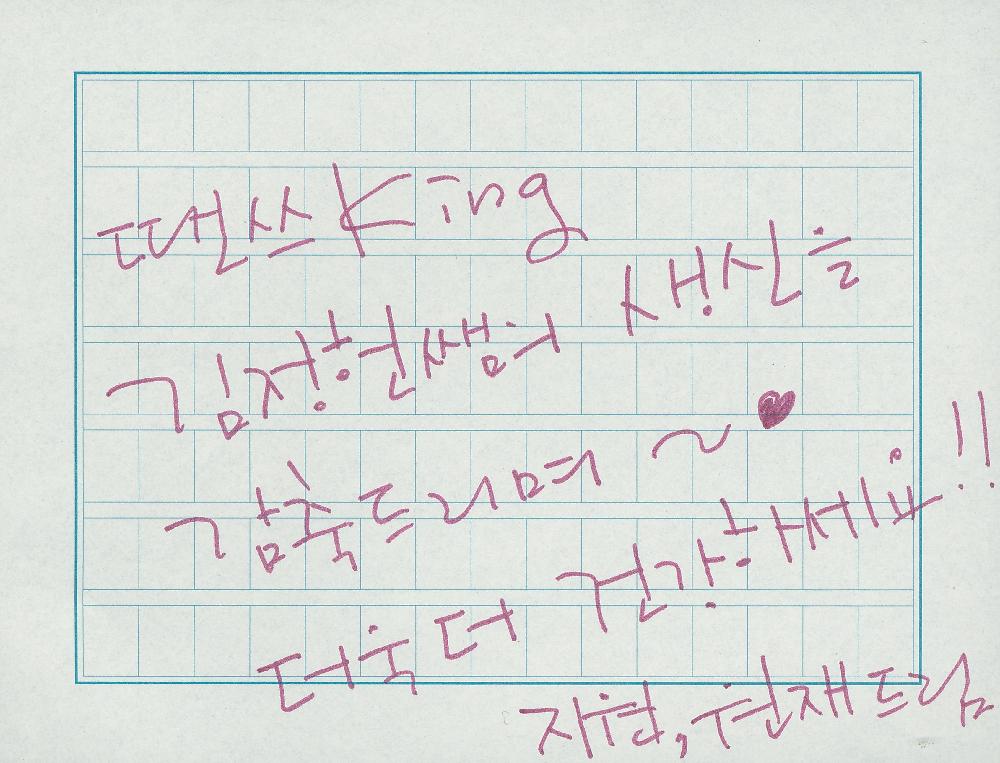 땐쓰 King
김정헌쌤의 생신을
감축드리며 ~ ♥
더욱더 건강하세요!!
지현, 현재 드림